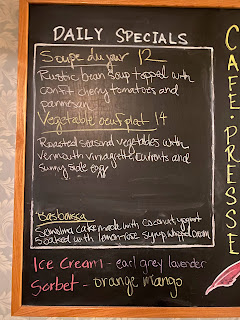 DAILY SPECIALS
Soupe du jour 12
Rustic bean soup topped with
confit cherry tomatoes and
parmesan
Vegetable oeuf plat 14
Roasted seasonal vegetables with
vermouth vinaigrette, currants and
sunny side egg
Basbousa
Semolina cake made with coconut yogurt
soaked with lemon-rose syrup, whipped cream
Ice Cream - earl grey lavender
Sorbet - orange mango
CAFE·PRESSE